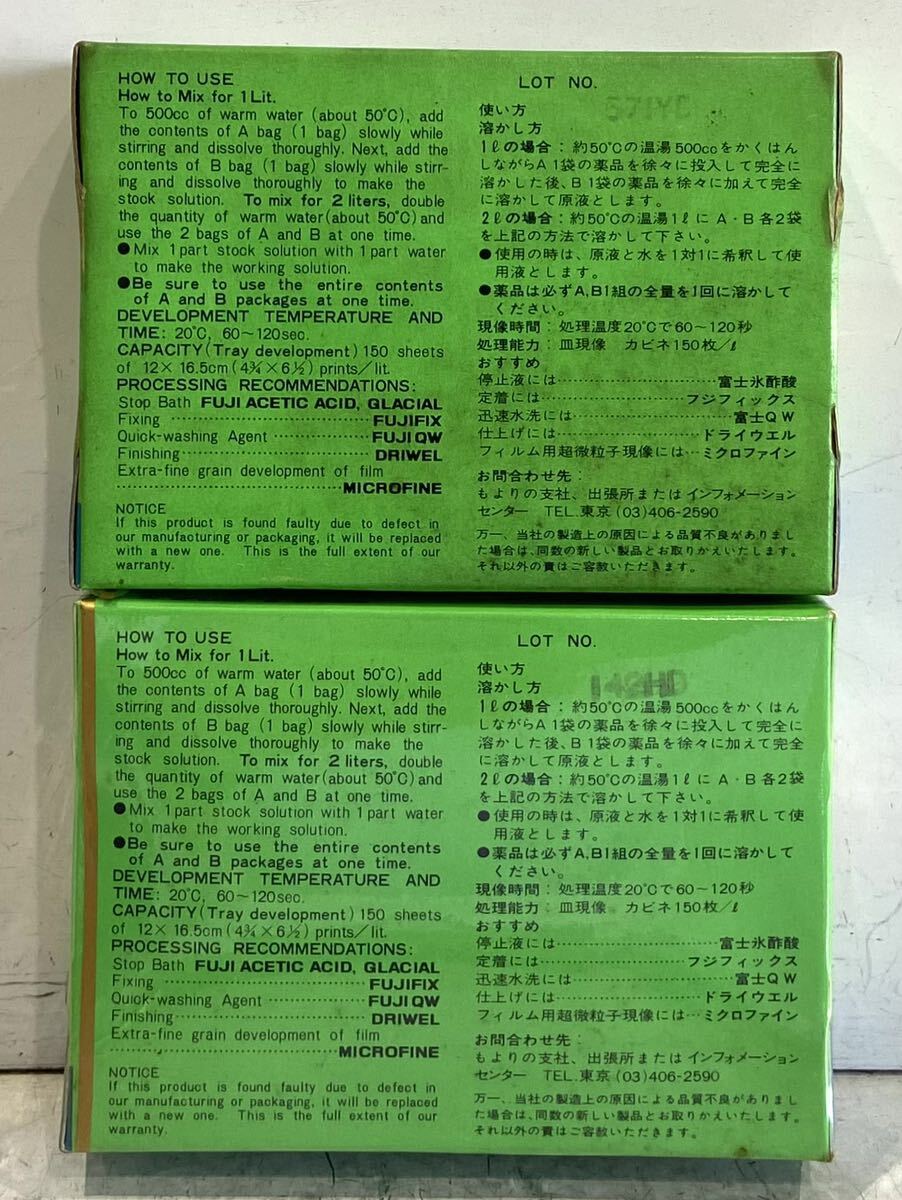 HOW TO USE
How to Mix for 1 Lit.
To 500cc of warm water (about 50°C), add
the contents of A bag (1 bag) slowly while
stirring and dissolve thoroughly. Next, add the
contents of B bag (1 bag) slowly while stirr-
ing and dissolve thoroughly to make the
stock solution. To mix for 2 liters, double
the quantity of warm water(about 50°C) and
use the 2 bags of A and B at one time.
●Mix 1 part stock solution with 1 part water
to make the working solution.
●Be sure to use the entire contents
of A and B packages at one time.
DEVELOPMENT TEMPERATURE AND
TIME: 20°C, 60～120sec.
CAPACITY(Tray development) 150 sheets
of 12× 16.5cm(4¾×6½) prints/lit.
PROCESSING RECOMMENDATIONS:
Stop Bath FUJI ACETIC ACID, GLACIAL
Fixing ……………………… FUJIFIX
Quick-washing Agent …………… FUJI QW
Finishing……………………… DRIWEL
Extra-fine grain development of film
……………………… MICROFINE
NOTICE
If this product is found faulty due to defect in
our manufacturing or packaging, it will be replaced
with a new one. This is the full extent of our
warranty.
LOT NO.
使い方
溶かし方
1ℓの場合：約50℃の温湯500ccをかくはん
しながらA 1袋の薬品を徐々に投入して完全に
溶かした後、B 1袋の薬品を徐々に加えて完全
に溶かして原液とします。
2ℓの場合：約50℃の温湯1ℓに A・B各2袋
を上記の方法で溶かして下さい。
●使用の時は、原液と水を1対1に希釈して使
用液とします。
●薬品は必ずA,B1組の全量を1回に溶かして
ください。
現像時間：処理温度20℃で60～120秒
処理能力：皿現像 カビネ150枚/ℓ
おすすめ
停止液には………………富士氷酢酸
定着には………………フジフィックス
迅速水洗には………………富士QW
仕上げには………………ドライウエル
フィルム用超微粒子現像には…ミクロファイン
お問合わせ先：
もよりの支社、出張所または インフォメーション
センター TEL.東京 (03)406-2590
万一、当社の製造上の原因による品質不良がありまし
た場合は、同数の新しい製品とお取りかえいたします。
それ以外の責はご容赦いただきます。
HOW TO USE
How to Mix for 1 Lit.
To 500cc of warm water (about 50°C), add
the contents of A bag (1 bag) slowly while
stirring and dissolve thoroughly. Next, add the
contents of B bag (1 bag) slowly while stirr-
ing and dissolve thoroughly to make the
stock solution. To mix for 2 liters, double
the quantity of warm water(about 50°C) and
use the 2 bags of A and B at one time.
●Mix 1 part stock solution with 1 part water
to make the working solution.
●Be sure to use the entire contents
of A and B packages at one time.
DEVELOPMENT TEMPERATURE AND
TIME: 20°C, 60～120sec.
CAPACITY(Tray development) 150 sheets
of 12× 16.5cm(4¾×6½) prints/lit.
PROCESSING RECOMMENDATIONS:
Stop Bath FUJI ACETIC ACID, GLACIAL
Fixing ……………………… FUJIFIX
Quick-washing Agent …………… FUJI QW
Finishing……………………… DRIWEL
Extra-fine grain development of film
……………………… MICROFINE
NOTICE
If this product is found faulty due to defect in
our manufacturing or packaging, it will be replaced
with a new one. This is the full extent of our
warranty.
LOT NO.
使い方
溶かし方
1ℓの場合：約50℃の温湯500ccをかくはん
しながらA 1袋の薬品を徐々に投入して完全に
溶かした後、B 1袋の薬品を徐々に加えて完全
に溶かして原液とします。
2ℓの場合：約50℃の温湯1ℓに A・B各2袋
を上記の方法で溶かして下さい。
●使用の時は、原液と水を1対1に希釈して使
用液とします。
●薬品は必ずA,B1組の全量を1回に溶かして
ください。
現像時間：処理温度20℃で60～120秒
処理能力：皿現像 カビネ150枚/ℓ
おすすめ
停止液には………………富士氷酢酸
定着には………………フジフィックス
迅速水洗には………………富士QW
仕上げには………………ドライウエル
フィルム用超微粒子現像には…ミクロファイン
お問合わせ先：
もよりの支社、出張所または インフォメーション
センター TEL.東京 (03)406-2590
万一、当社の製造上の原因による品質不良がありまし
た場合は、同数の新しい製品とお取りかえいたします。
それ以外の責はご容赦いただきます。